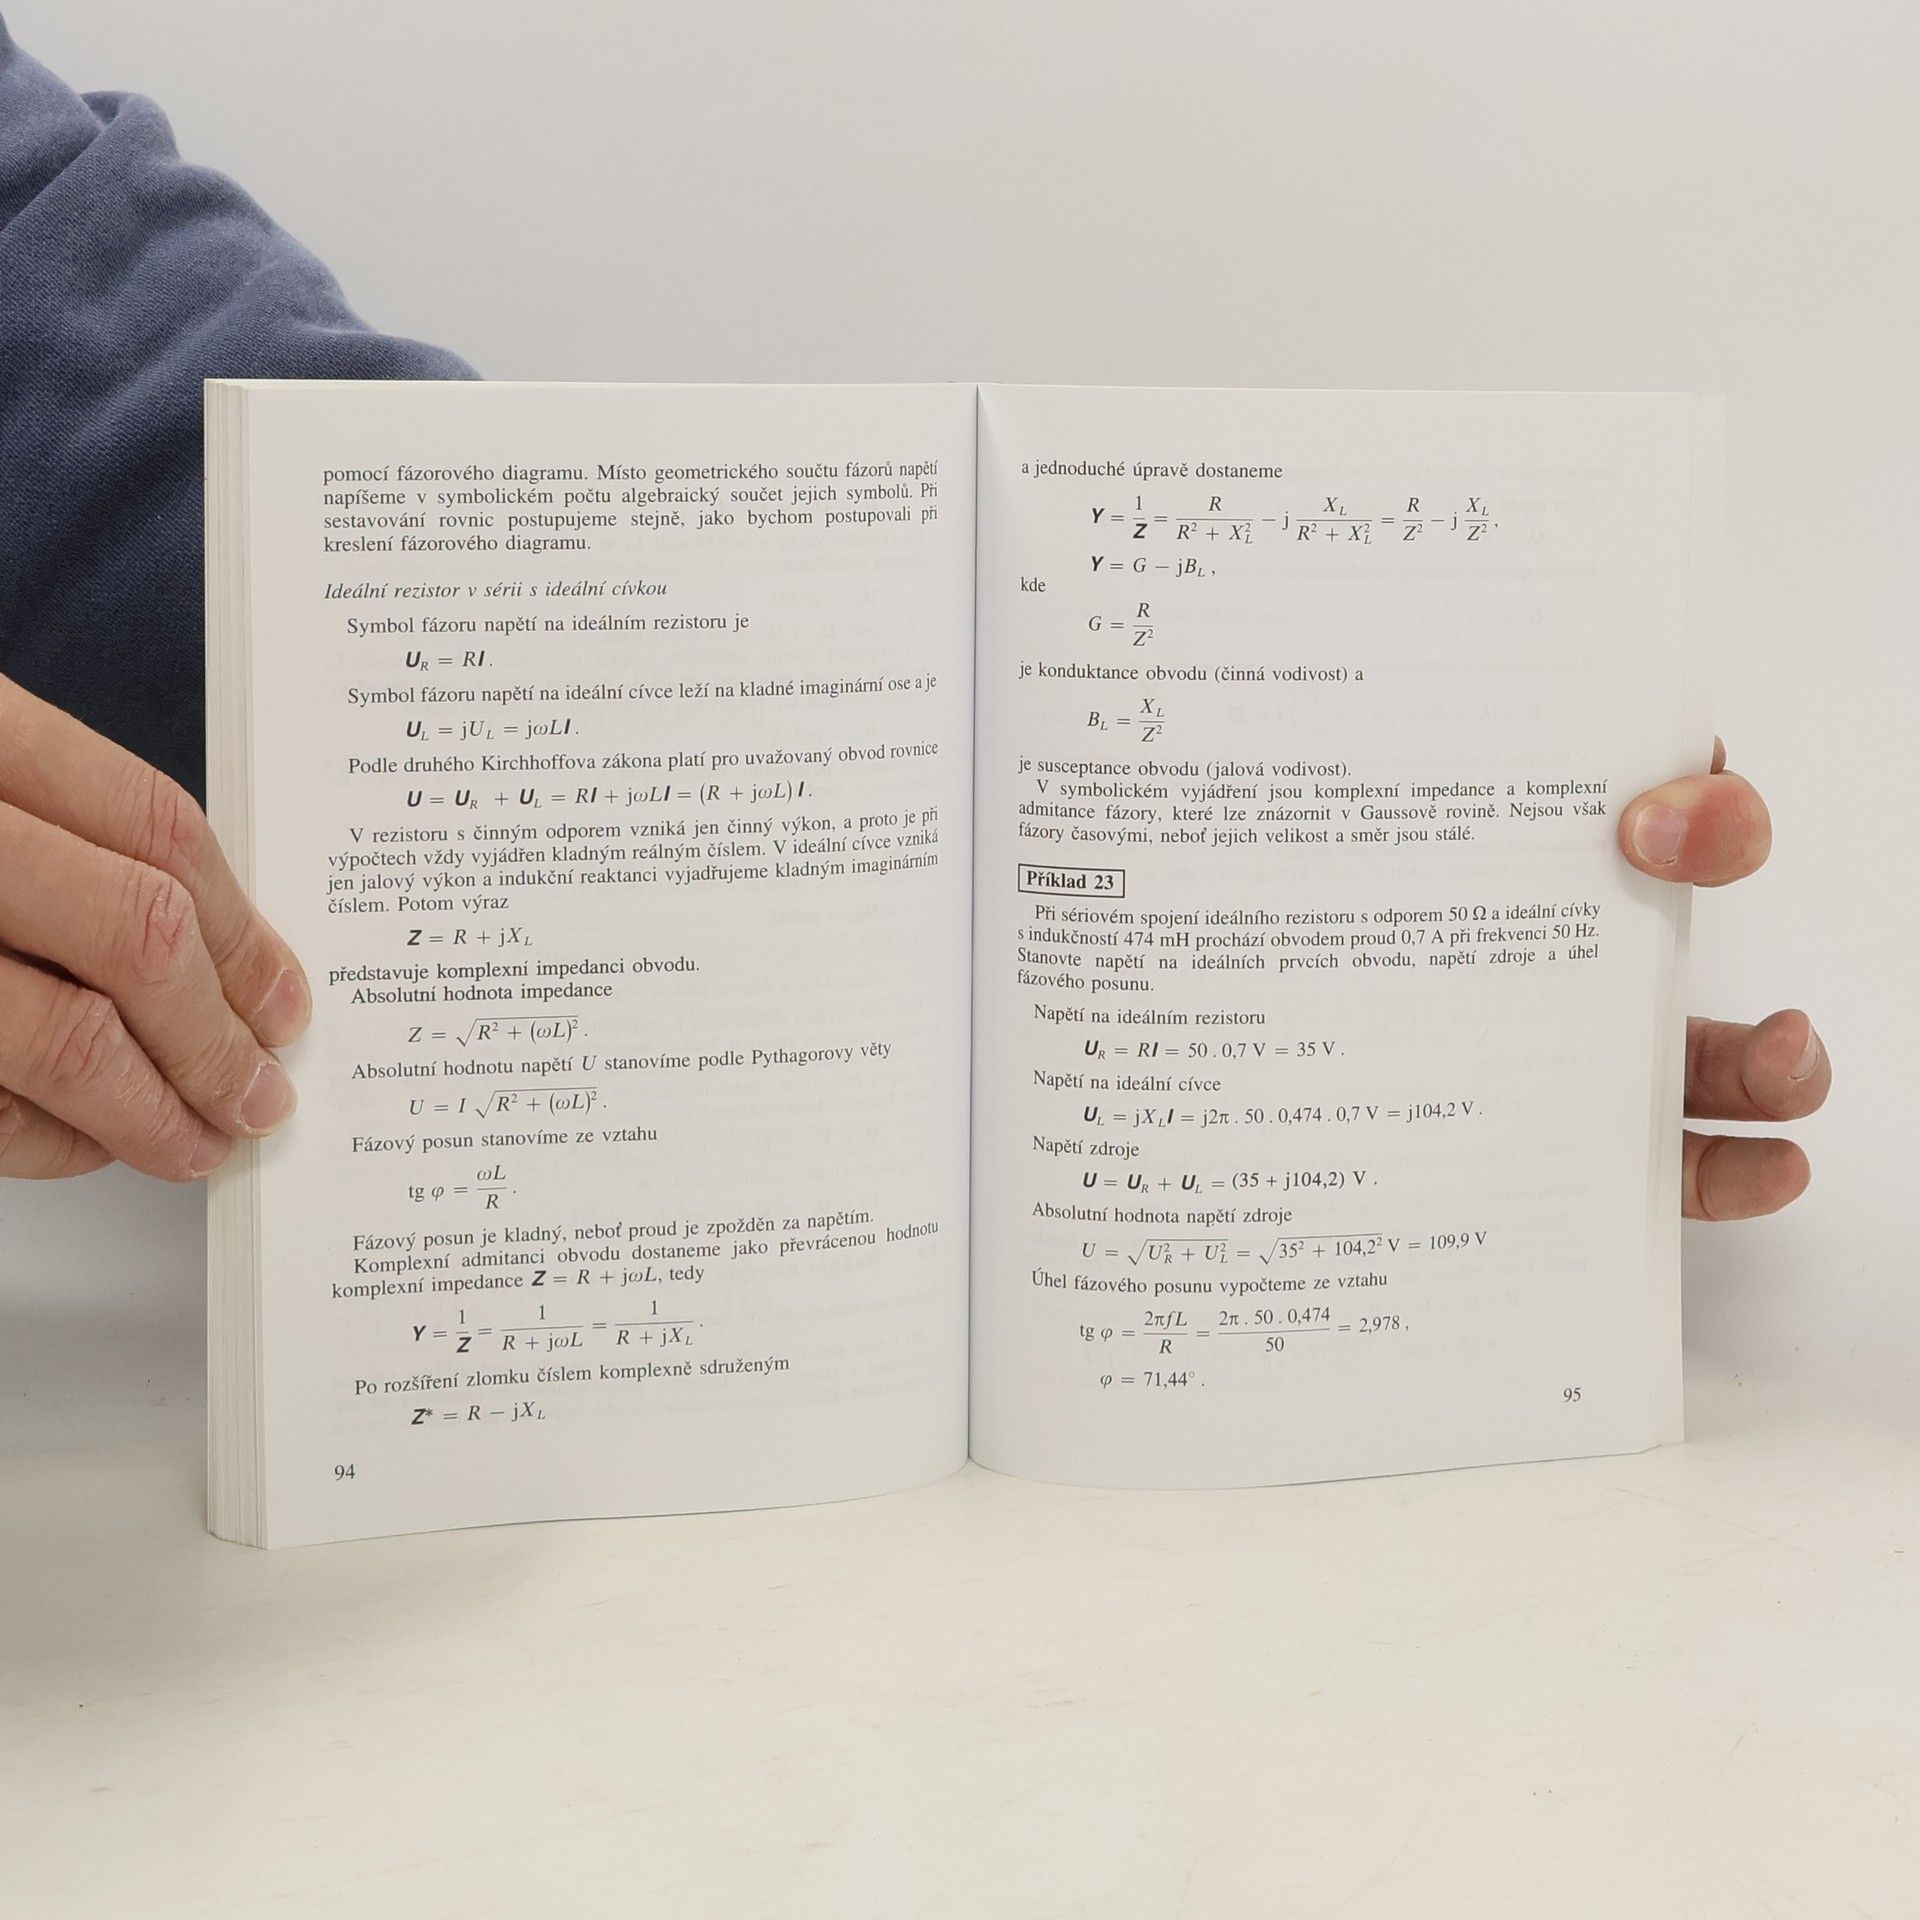 pomocí fázorového diagramu. Místo geometrického součtu fázorů napětí
napíšeme v symbolickém počtu algebraický součet jejich symbolů. Při
sestavování rovnic postupujeme stejně, jako bychom postupovali při
kreslení fázorového diagramu.
Ideální rezistor v sérii s ideální cívkou
Symbol fázoru napětí na ideálním rezistoru je
U_R = RI.
Symbol fázoru napětí na ideální cívce leží na kladné imaginární ose a je
U_L = jU_L = jωLI.
Podle druhého Kirchhoffova zákona platí pro uvažovaný obvod rovnice
U = U_R + U_L = RI + jωLI = (R + jωL) I.
V rezistoru s činným odporem vzniká jen činný výkon, a proto je při
výpočtech vždy vyjádřen kladným reálným číslem. V ideální cívce vzniká
jen jalový výkon a indukční reaktanci vyjadřujeme kladným imaginárním
číslem. Potom výraz
Z = R + jX_L
představuje komplexní impedanci obvodu.
Absolutní hodnota impedance
Z = √(R² + (ωL)²).
Absolutní hodnotu napětí U stanovíme podle Pythagorovy věty
U = I √(R² + (ωL)²).
Fázový posun stanovíme ze vztahu
tg φ = ωL / R.
Fázový posun je kladný, neboť proud je zpožděn za napětím.
Komplexní admitanci obvodu dostaneme jako převrácenou hodnotu
komplexní impedance Z = R + jωL, tedy
Y = 1/Z = 1/(R + jωL) = 1/(R + jX_L).
Po rozšíření zlomku číslem komplexně sdruženým
Z* = R − jX_L
94
a jednoduché úpravě dostaneme
Y = 1/Z = R/(R² + X_L²) − j X_L/(R² + X_L²) = R/Z² − j X_L/Z²,
Y = G − jB_L,
kde
G = R/Z²
je konduktance obvodu (činná vodivost) a
B_L = X_L/Z²
je susceptance obvodu (jalová vodivost).
V symbolickém vyjádření jsou komplexní impedance a komplexní
admitance fázory, které lze znázornit v Gaussově rovině. Nejsou však
fázory časovými, neboť jejich velikost a směr jsou stálé.
Příklad 23
Při sériovém spojení ideálního rezistoru s odporem 50 Ω a ideální cívky
s indukčností 474 mH prochází obvodem proud 0,7 A při frekvenci 50 Hz.
Stanovte napětí na ideálních prvcích obvodu, napětí zdroje a úhel
fázového posunu.
Napětí na ideálním rezistoru
U_R = RI = 50 . 0,7 V = 35 V.
Napětí na ideální cívce
U_L = jX_LI = j2π . 50 . 0,474 . 0,7 V = j104,2 V.
Napětí zdroje
U = U_R + U_L = (35 + j104,2) V.
Absolutní hodnota napětí zdroje
U = √(U_R² + U_L²) = √(35² + 104,2²) V = 109,9 V
Úhel fázového posunu vypočteme ze vztahu
tg φ = 2πfL / R = 2π . 50 . 0,474 / 50 = 2,978,
φ = 71,44°.
95